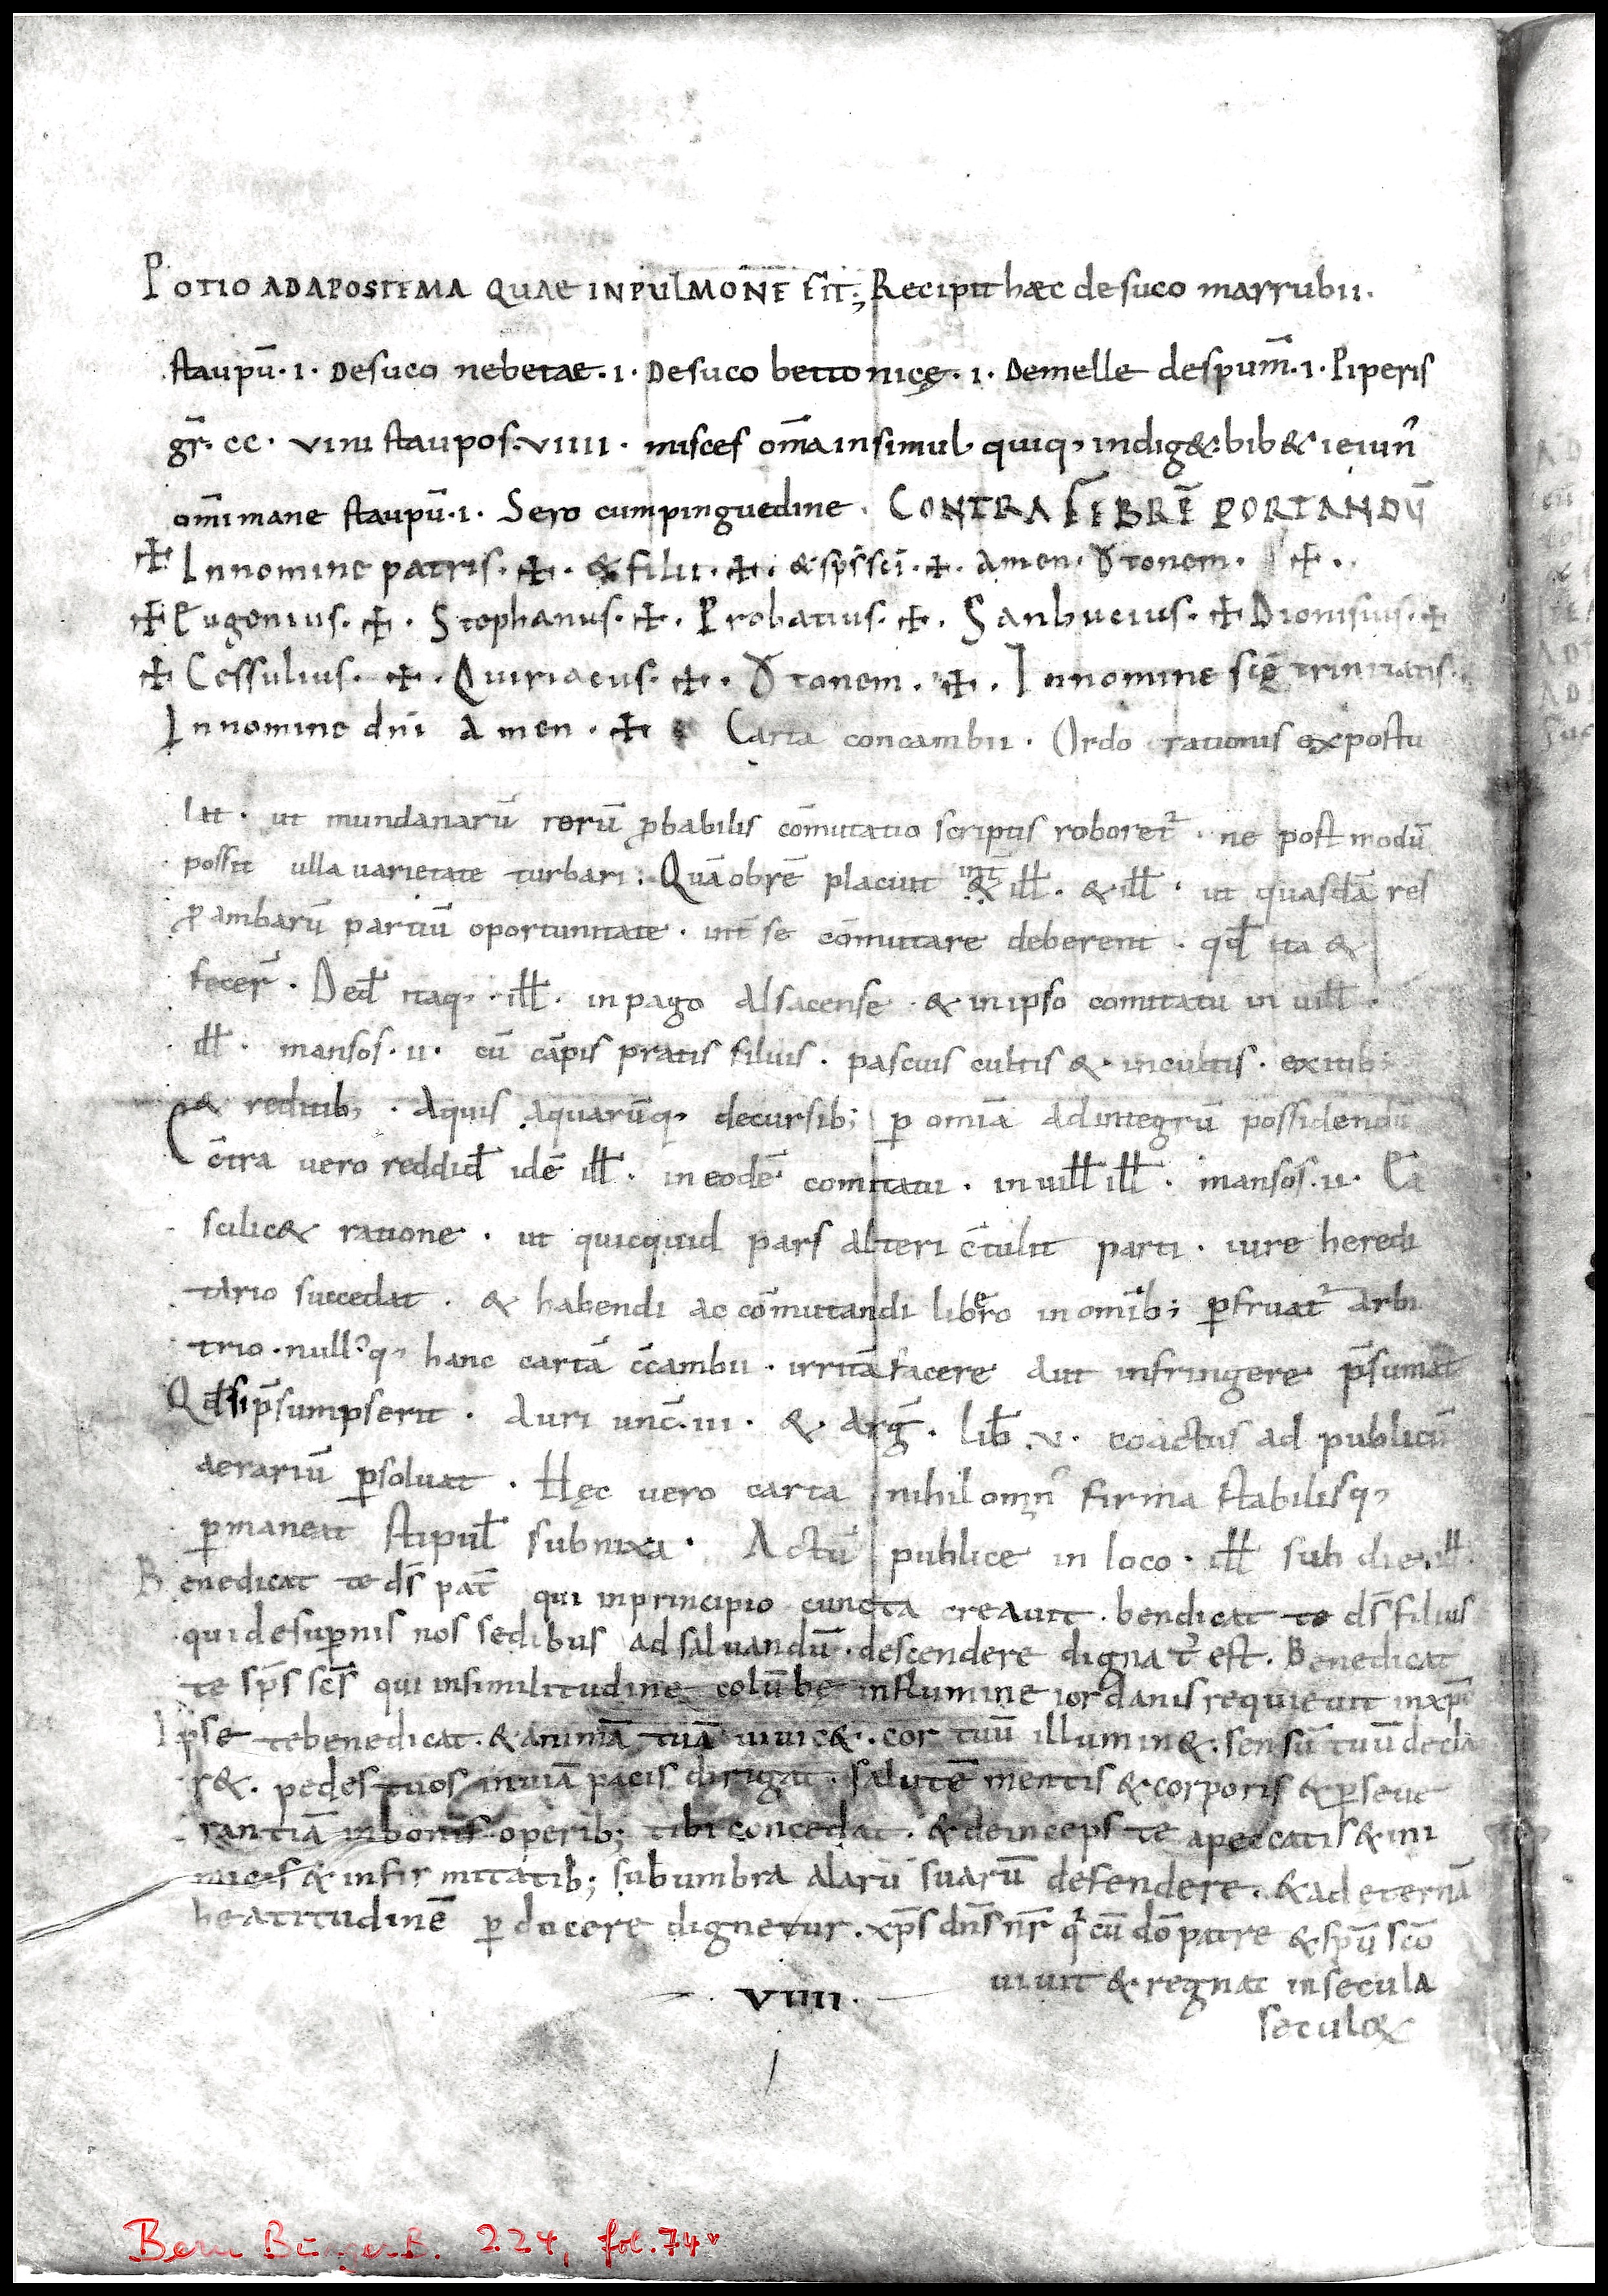 POTIO AD APOSTEMA QUAE IN PULMONE FIT; Recipit haec de suco marrubii.
staupū. I. De suco nebetae. I. De suco bettonicę. I. De melle despum̄. I. Piperis
gr̄. CC. vini staupos. VIIII. misces om̄a insimul quiq, indig&. bib& ieiun̄
om̄i mane staupū. I. Sero cum pinguedine. CONTRA FEBRĒ PORTANDŪ
✠ In nomine patris. ✠. & filii. ✠. & sp̄s sc̄i. ✠. Amen. tonem. ✠.
✠ Eugenius. ✠. Stephanus. ✠. Probatius. ✠. Sanbucius. ✠ Dionisius. ✠
✠ Cessulius. ✠. Quiriacus. ✠. tonem. ✠. In nomine sc̄ę trinitatis.
In nomine dn̄i Amen. ✠ Carta concambii. Ordo rationis expostu
lat. ut mundanarū rerū ꝓbabilis com̄utatio scriptis roboret᷑. ne postmodū
possit ulla varietate turbari. Quāobrē placuit int̄ & ill̄. & ill̄. ut quasdā res
ꝓ ambarū partiū oportunitate. int̄ se com̄utare deberent. qd̄ ita &
fecer̄. Ded̄ itaq,. ill̄. in pago alsacense. & in ipso comitatu in uill̄.
ill̄. mansos. II. cū cāpis pratis siluis. pascuis cultis & incultis. exitib;
& reditib,. Aquis aquarūq, decursib; ꝑ omia ad integrū possidendū
Cōtra vero reddid̄ idē ill̄. in eodē comitatu. in uill̄ ill̄. mansos. II. Ea
scilic& ratione. ut quicquid pars alteri cōtulit parti. iure heredi
tario succedat. & habendi ac com̄utandi libero in omib; ꝑfruat᷑ arbi
trio. null᷒q, hanc cartā cōcambii. irritā facere aut infringere p̄sumat
Qd̄ si p̄sumpserit. Auri unc̄. III. & arḡ. lib̄. V. coactus ad publicū
aerariū ꝑsoluat. Hęc vero carta nihilomin᷒ firma stabilisq,
ꝑmaneat stipul̄ subnixa. Actū publice in loco. ill̄ sub die. ill̄.
Benedicat te ds̄ pat̄ qui in principio cuncta creauit. bendicat te ds̄ filius
qui de suꝑnis nos sedibus ad saluandū. descendere dignat᷒ est. Benedicat
te sp̄s sc̄s qui in similitudine colūbe in flumine iordanis requieuit in xp̄o
Ipse te benedicat. & animā tuā uiuic&. cor tuū illumin&. sensū tuū decla
r&. pedes tuos in uiā pacis dirigat. salutē mentis & corporis & ꝑseue
rantiā in bonis operib; tibi concedat. & deinceps te a peccatis & ini
micis & infirmitatib; sub umbra alarū suarū defendere. & ad eternā
beatitudinē ꝑducere dignetur. xp̄s dn̄s nr̄ qͥ cū do̅ patre & spū scō
uiuit & regnat in secula
VIIII.
Bern BürgerB. 224, fol. 74v